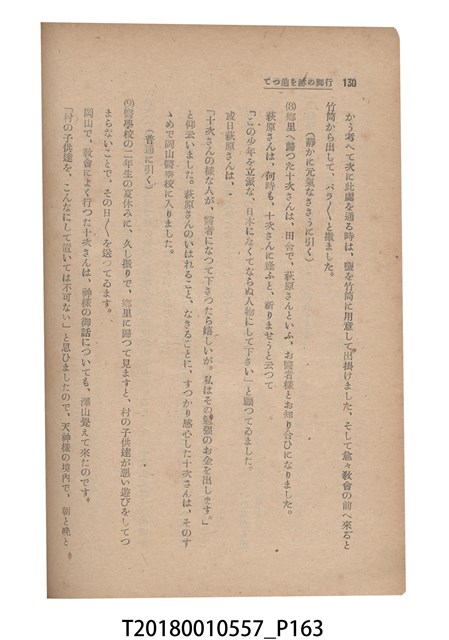 130 行脚の跡を追つて
かう考へて次に此處を通る時は、鹽を竹筒に用意して出掛けました、そして愈々敎會の前へ來ると
竹筒から出して、パラ〳〵と撒ました。
(靜かに元氣なささうに引く)
(8)鄕里へ歸つた十次さんは、田舍で、萩原さんといふ、お醫者樣とお知り合ひになりました。
萩原さんは、何時も、十次さんに逢ふと、祈りませうと云つて
「この少年を立派な、日本になくてならぬ人物にして下さい」と願つてゐました。
或日萩原さんは、
「十次さんの樣な人が、醫者になつて下さつたら嬉しいが。私はその勉强のお金を出します。」
と仰云いました。萩原さんのいはれること、なさることに、すつかり感心した十次さんは、そのす
ゝめで岡山醫學校に入りました。
(普通に引く)
(9)醫學校の二年生の夏休みに、久し振りで、鄕里に歸つて見ますと、村の子供達が惡い遊びをしてつ
まらないことで、その日〳〵を送つてゐます。
岡山で、敎會によく行つた十次さんは、神樣の御話についても、澤山覺えて來たのです。
「村の子供達を、こんなにして置いては不可ない」と思ひましたので、天神樣の境內で、朝と晩と
T20180010557_P163